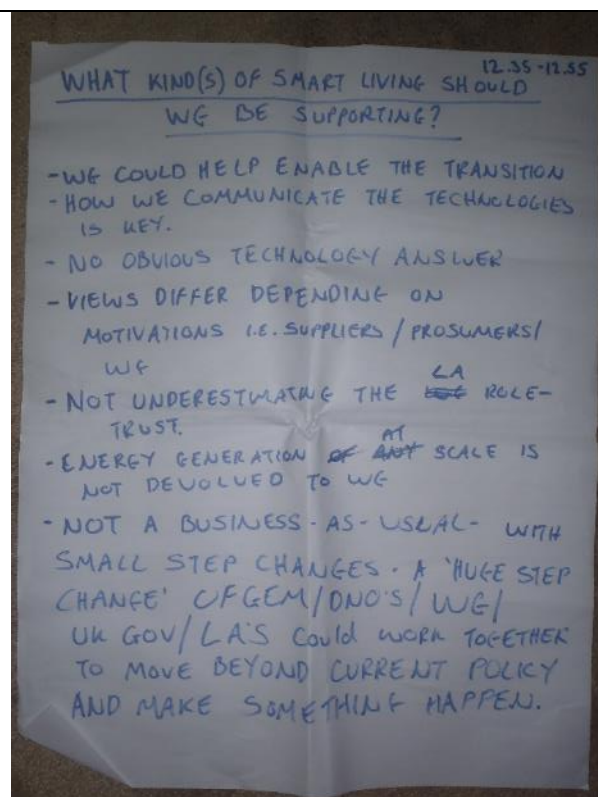 12.35-12.55
WHAT KIND(S) OF SMART LIVING SHOULD
WG BE SUPPORTING?
- WG COULD HELP ENABLE THE TRANSITION
- HOW WE COMMUNICATE THE TECHNOLOGIES
IS KEY.
- NO OBVIOUS TECHNOLOGY ANSWER
- VIEWS DIFFER DEPENDING ON
MOTIVATIONS I.E. SUPPLIERS / PROSUMERS /
WG
- NOT UNDERESTIMATING THE LA ROLE-
TRUST.
- ENERGY GENERATION AT SCALE IS
NOT DEVOLVED TO WG
- NOT A BUSINESS-AS-USUAL- WITH
SMALL STEP CHANGES. A 'HUGE STEP
CHANGE' OFGEM/DNO'S/WG/
UK GOV/LA'S Could WORK TOGETHER
TO MOVE BEYOND CURRENT POLICY
AND MAKE SOMETHING HAPPEN.